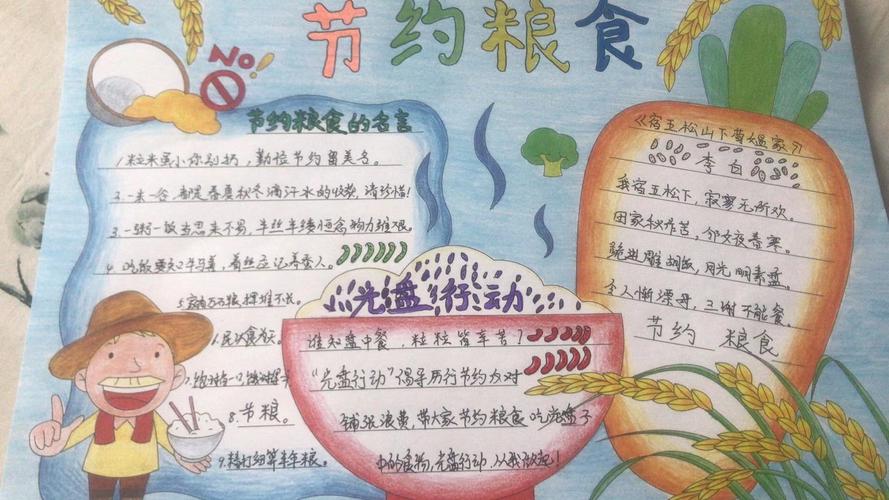 节约粮食
No!
节约粮食的名言
1.粒米虽小你别扔，勤俭节约留美名。
2.一米一谷，都是春夏秋冬滴汗水的收获，请珍惜！
3.一粥一饭当思来不易，半丝半缕恒念物力维艰。
4.吃饭要知牛马善，着丝应记养蚕人。
家有万石粮，挥堆不长。
6.民以食为天
8.节粮。
9.精打细算半年粮。
光盘行动
谁知盘中餐，粒粒皆辛苦？
“光盘行动”倡导厉行节约反对
铺张浪费，带大家节约粮食吃光盘子
中的食物，光盘行动，从我做起！
《宿五松山下荀媪家》
李白
我宿五松下，寂寥无所欢。
田家秋作苦，邻女夜舂寒。
跪进雕胡饭，月光明素盘。
令人惭漂母，三谢不能餐。
节约 粮食